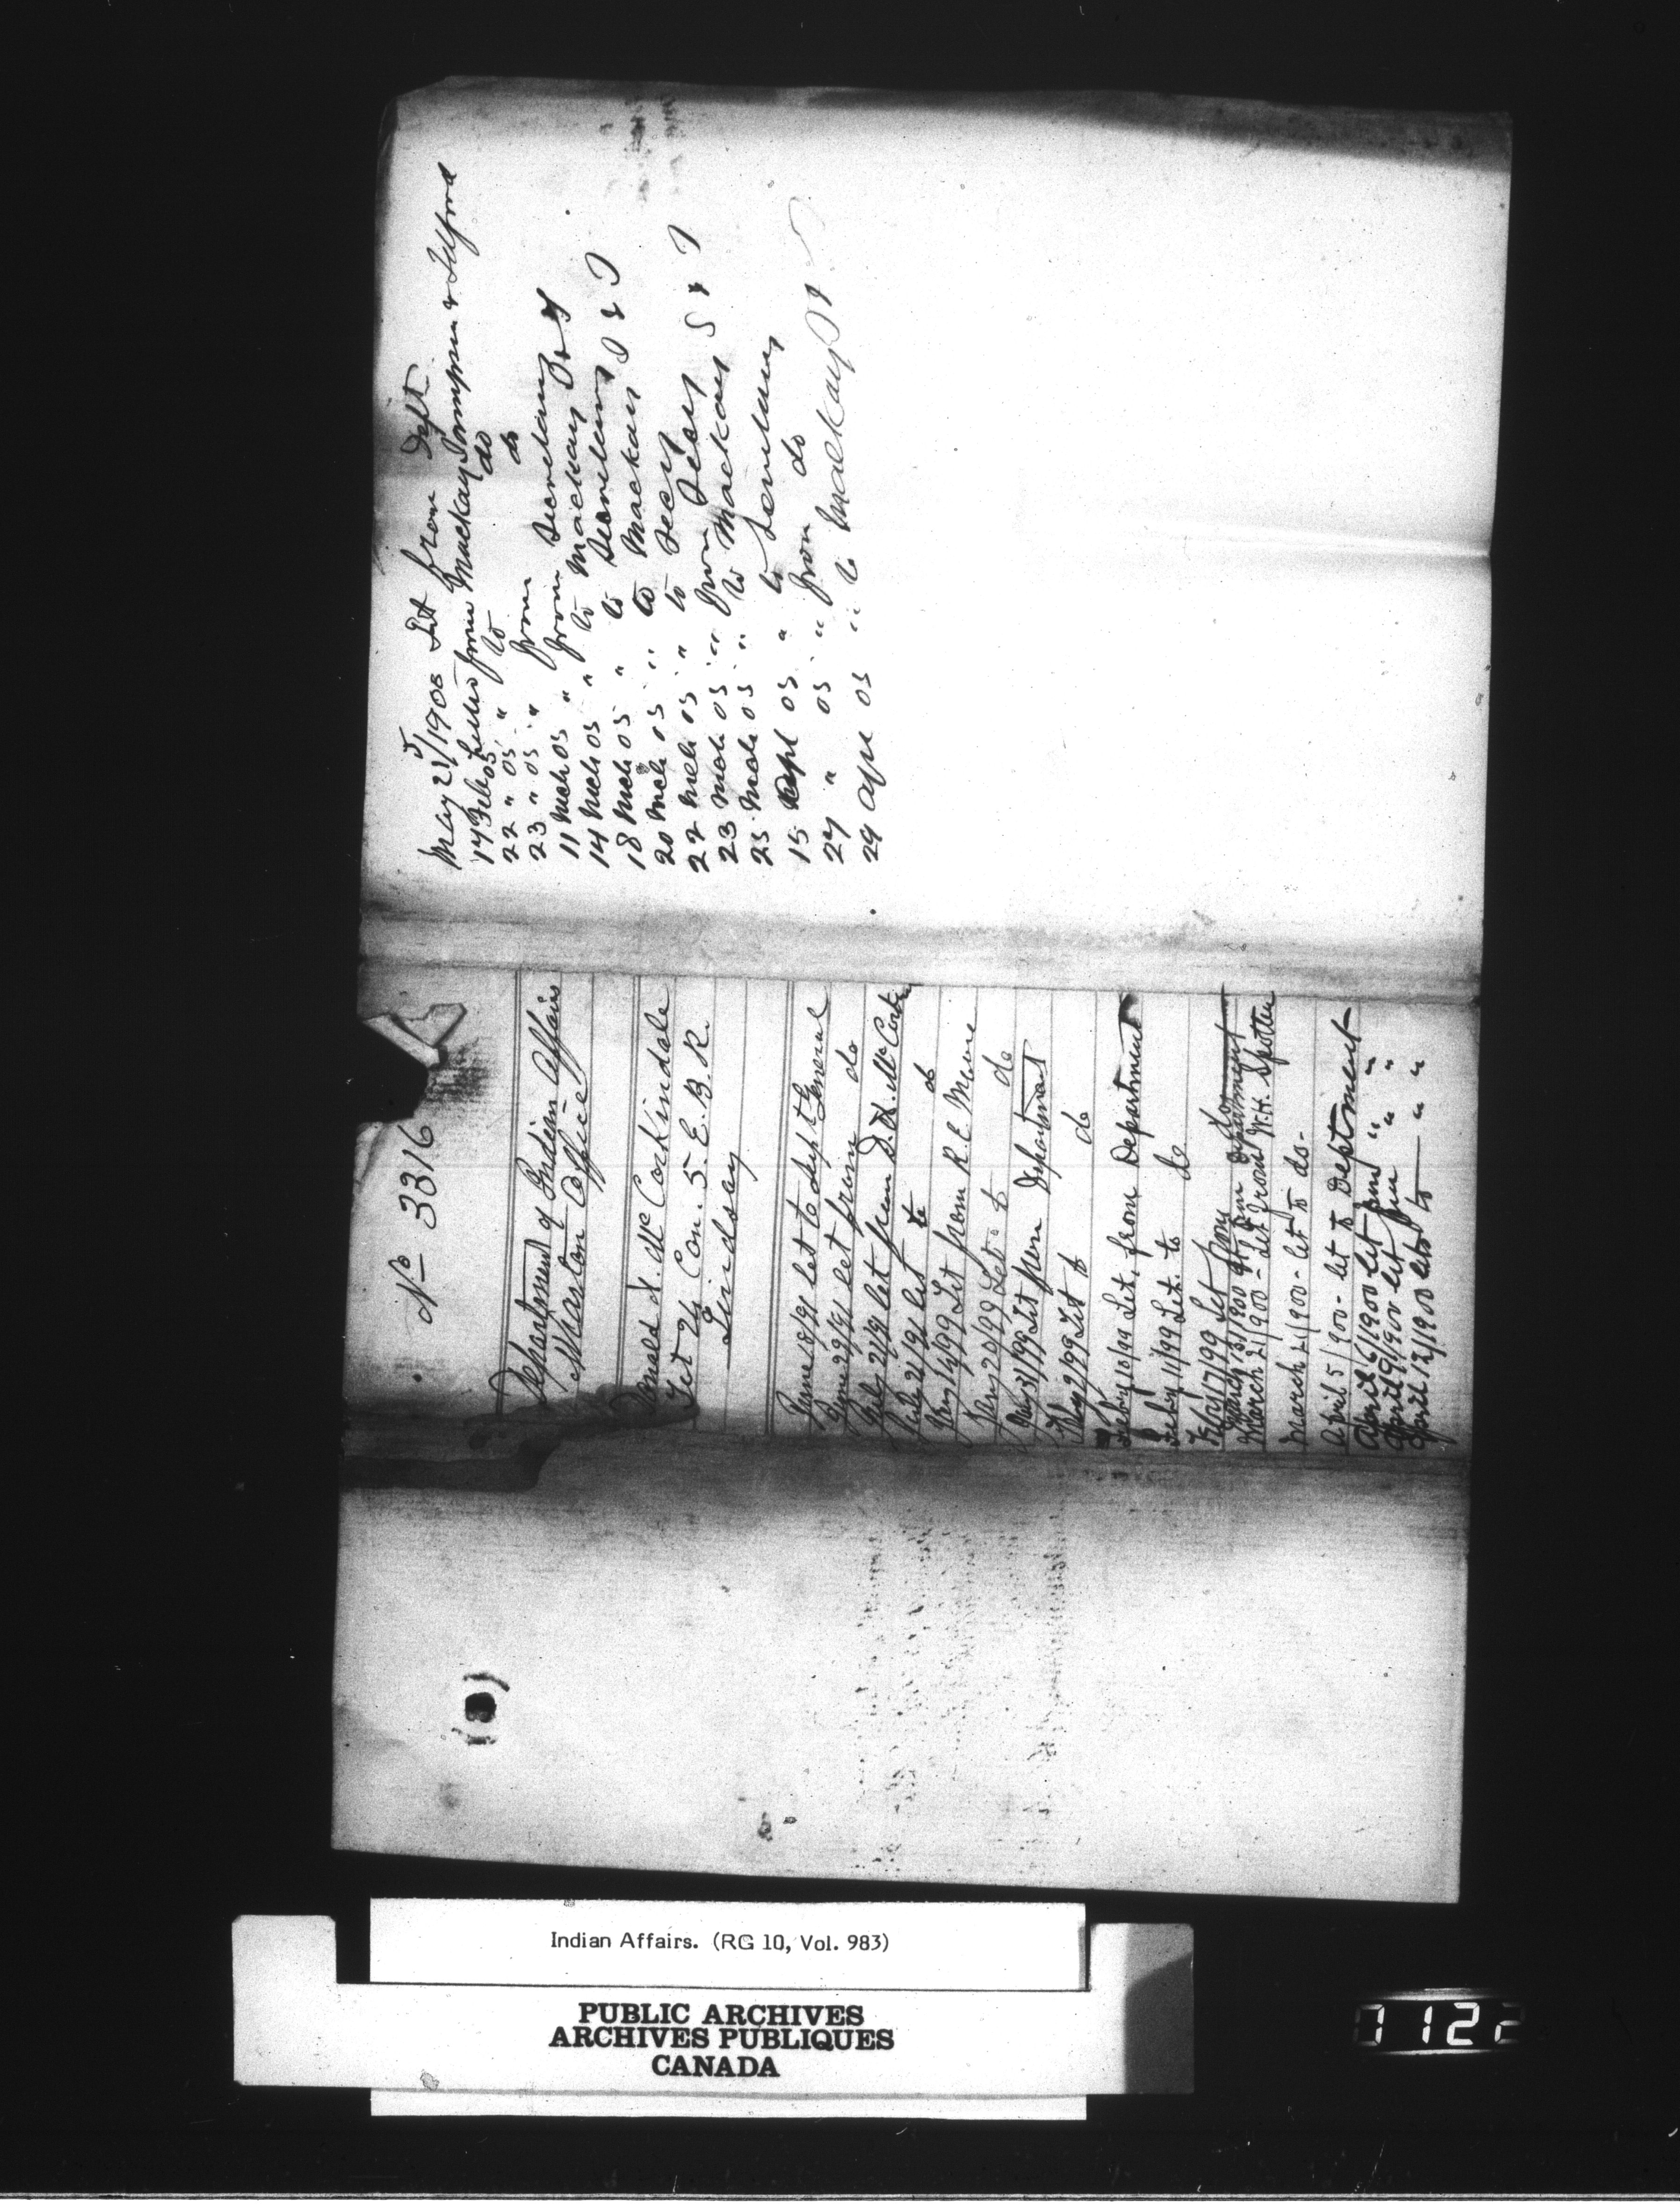 No 3316
Department of Indian Affairs
Wiarton Office
Donald H. McCorkindale
Lot 24 Con. 5. E. B. R.
Lindsay
June 18/91 Let to Supt General
June 29/91 Let from do
July 21/91 Let from D. H. McCork
July 21/91 Let to do
Jany 14/99 Let from R. E. Moore
Jany 20/99 Let to do
Jany 31/99 Let from Department
Feby 2/99 Let to do
Feby 10/99 Let. from Department
Feby 11/99 Let. to do
Feby 17/99 Let from do
March 13/1900 Let from Department
March 21/900 - Let from W. H. Spotton
March 21/900 - Let to do -
April 5/900 - Let to Deptment
April 6/1900 Let from " "
April 9/1900 Let from " "
April 12/1900 Let to " "
May 21/1905 Let from Dept
14 Feb 05 Letter from Mackay Sampson & Telford
22 " 05 " to do
23 " 05 " from do
11 Mch 05 " from Secretary
14 Mch 05 " to Mackay S & T
18 Mch 05 " to Secretary
20 Mch 05 " to Mackay S & T
22 Mch 05 " to Secy
23 Mch 05 " from Secy
25 Mch 05 " to Mackay S & T
15 Apl 05 " to Secretary
27 " 05 " from do
29 Apl 05 " to Mackay S &
Indian Affairs. (RG 10, Vol. 983)
PUBLIC ARCHIVES
ARCHIVES PUBLIQUES
CANADA
1122